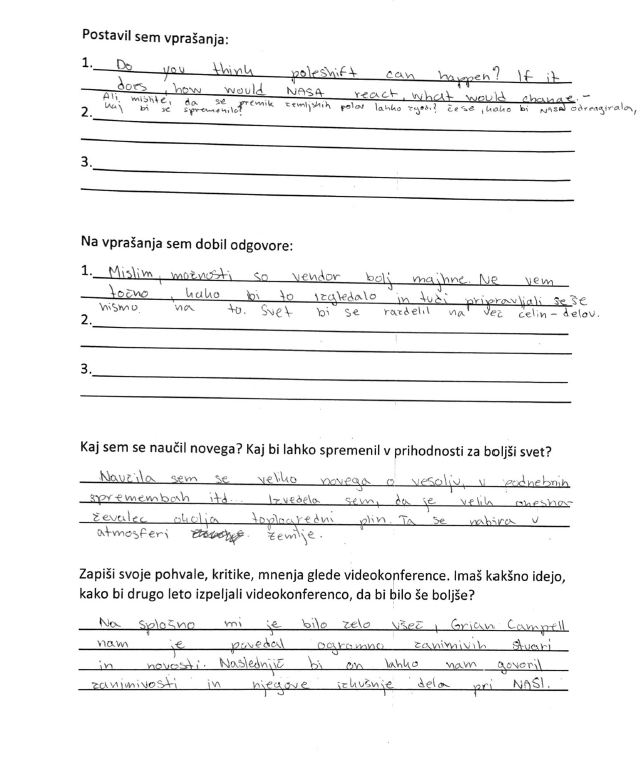 Postavil sem vprašanja:
1. Do you think poleshift can happen? If it
does, how would NASA react, what would change. -
Ali mislite, da se premik zemljskih polov lahko zgodi? Če se, kako bi NASA odreagirala,
kaj bi se spremenilo?
2.
3.
Na vprašanja sem dobil odgovore:
1. Mislim, možnosti so vendor bolj majhne. Ne vem
točno, kako bi to izgledalo in tudi pripravljali se še
nismo na to. Svet bi se razdelil na več celin - delov.
2.
3.
Kaj sem se naučil novega? Kaj bi lahko spremenil v prihodnosti za boljši svet?
Naučila sem se veliko novega o vesolju, v podnebnih
spremembah itd.. Izvedela sem, da je velik onesna-
ževalec okolja toplogredni plin. Ta se nabira v
atmosferi zemlje.
Zapiši svoje pohvale, kritike, mnenja glede videokonference. Imaš kakšno idejo,
kako bi drugo leto izpeljali videokonferenco, da bi bilo še boljše?
Na splošno mi je bilo zelo všeč, Grian Campell
nam je povedal ogromno zanimivih stvari
in novosti. Naslednjič bi on lahko nam govoril
zanimivosti in njegove izkušnje dela pri NASI.